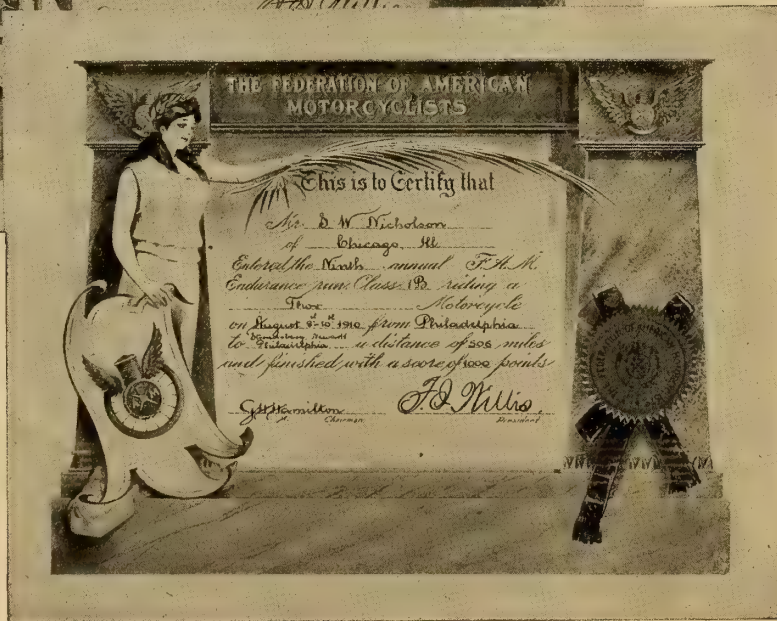 THE FEDERATION OF AMERICAN
MOTORCYCLISTS
This is to Certify that
Mr. S W Nicholson
of Chicago, Ill
Entered the Ninth annual F.A.M.
Endurance run Class 1B riding a
Thor Motorcycle
on August 8th-10th 1910 from Philadelphia
to Stroudsburg Newark
Philadelphia a distance of 506 miles
and finished with a score of 1000 points
G H Hamilton F. I. Willis.
Chairman President